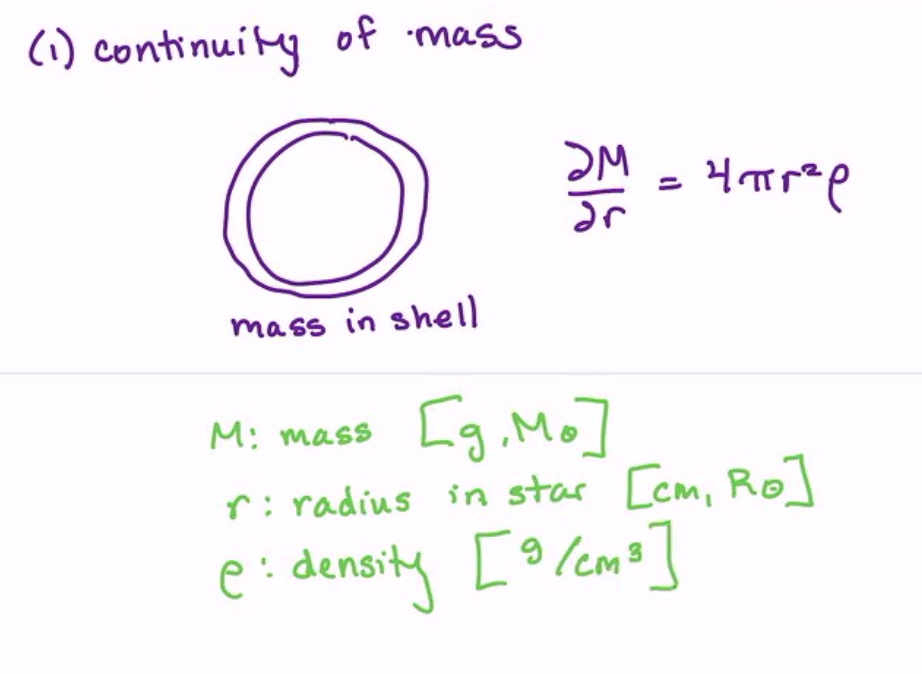 (1) continuity of mass
∂M/∂r = 4πr²ρ
mass in shell
M: mass [g, M⊙]
r: radius in star [cm, R⊙]
ρ: density [g/cm³]